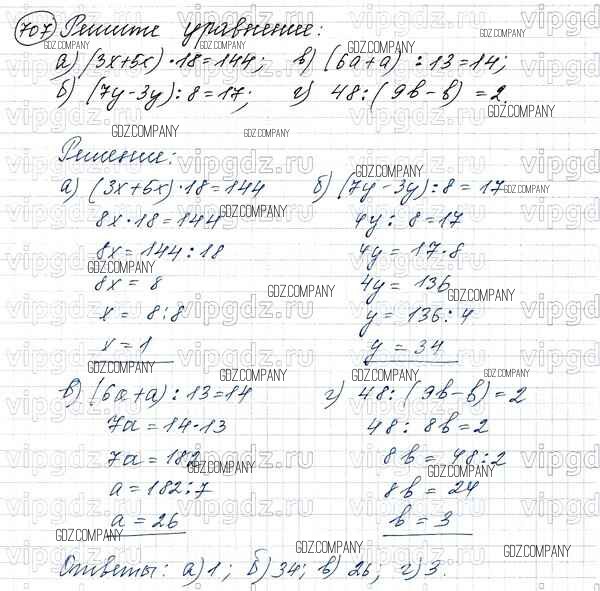 707 Решите уравнение:
а) (3x+5x)·18=144; в) (6a+a):13=14;
б) (7y-3y):8=17; г) 48:(9b-b)=2.
Решение:
а) (3x+5x)·18=144
8x·18=144
8x=144:18
8x=8
x=8:8
x=1
б) (7y-3y):8=17
4y:8=17
4y=17·8
4y=136
y=136:4
y=34
в) (6a+a):13=14
7a=14·13
7a=182
a=182:7
a=26
г) 48:(9b-b)=2
48:8b=2
8b=48:2
8b=24
b=3
Ответы: а)1; б)34; в)26; г)3.
GDZ.COMPANY
vipgdz.ru